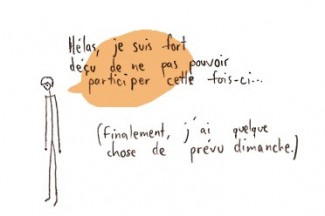 Hélas, je suis fort
déçu de ne pas pouvoir
participer cette fois-ci...
(Finalement, j'ai quelque
chose de prévu dimanche.)